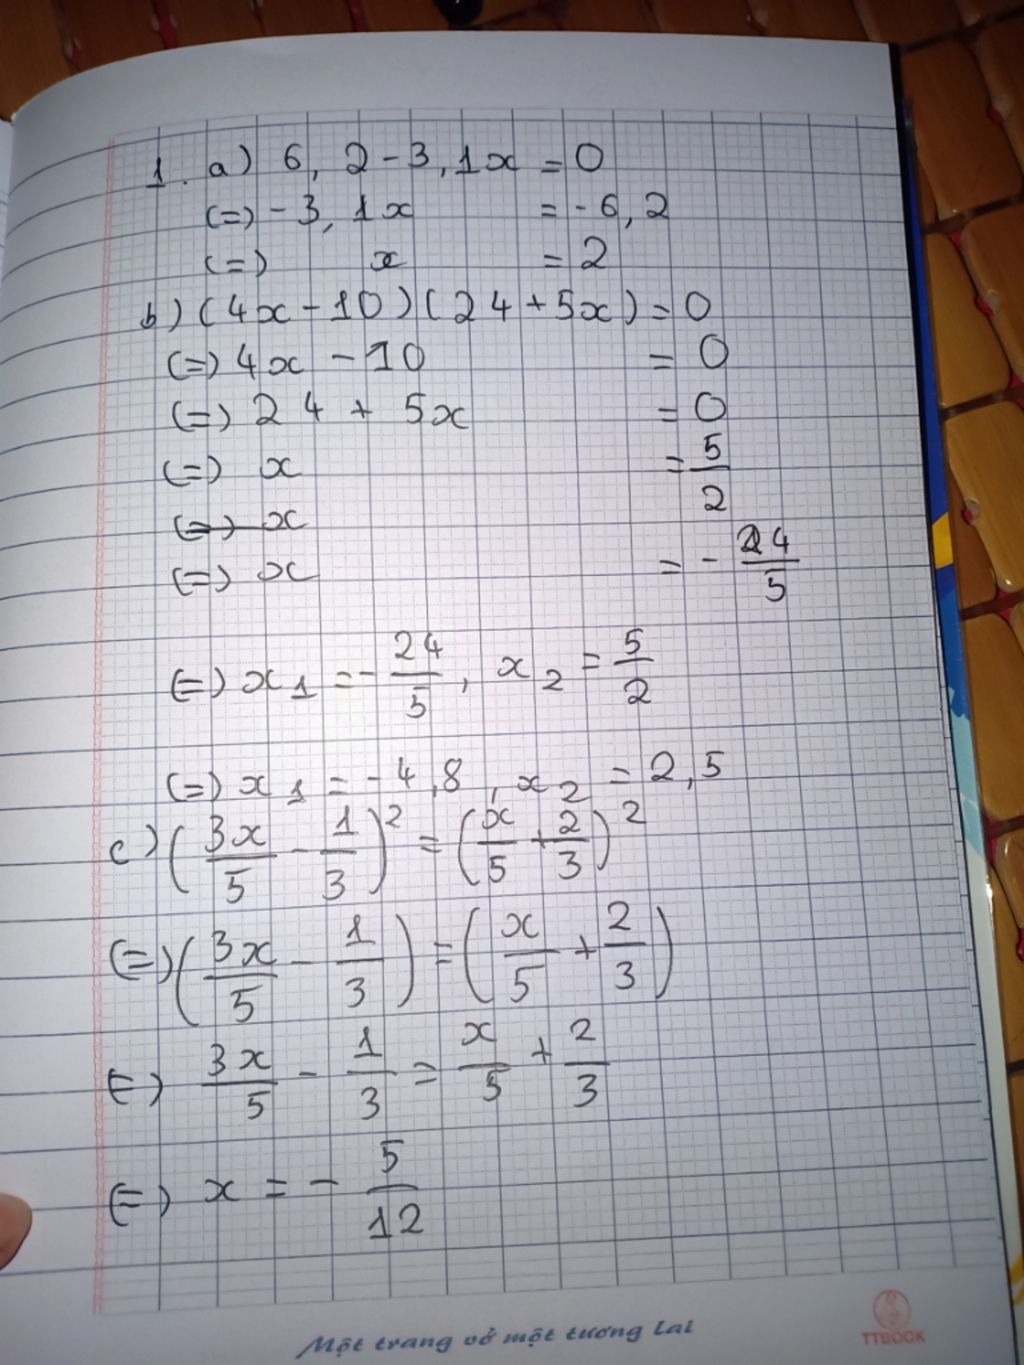 1. a) 6,2-3,1x = 0
(=) -3,1x = -6,2
(=) x = 2
b) (4x-10)(24+5x) = 0
(=) 4x - 10 = 0
(=) 24 + 5x = 0
(=) x = 5/2
(=) x
(=) x = - 24/5
(=) x1 = - 24/5, x2 = 5/2
(=) x1 = -4,8, x2 = 2,5
c) (3x/5 - 1/3)² = (x/5 + 2/3)²
(=) (3x/5 - 1/3) = (x/5 + 2/3)
(=) 3x/5 - 1/3 = x/5 + 2/3
(=) x = - 5/12
Một trang vở một tương lai
TTBOOK